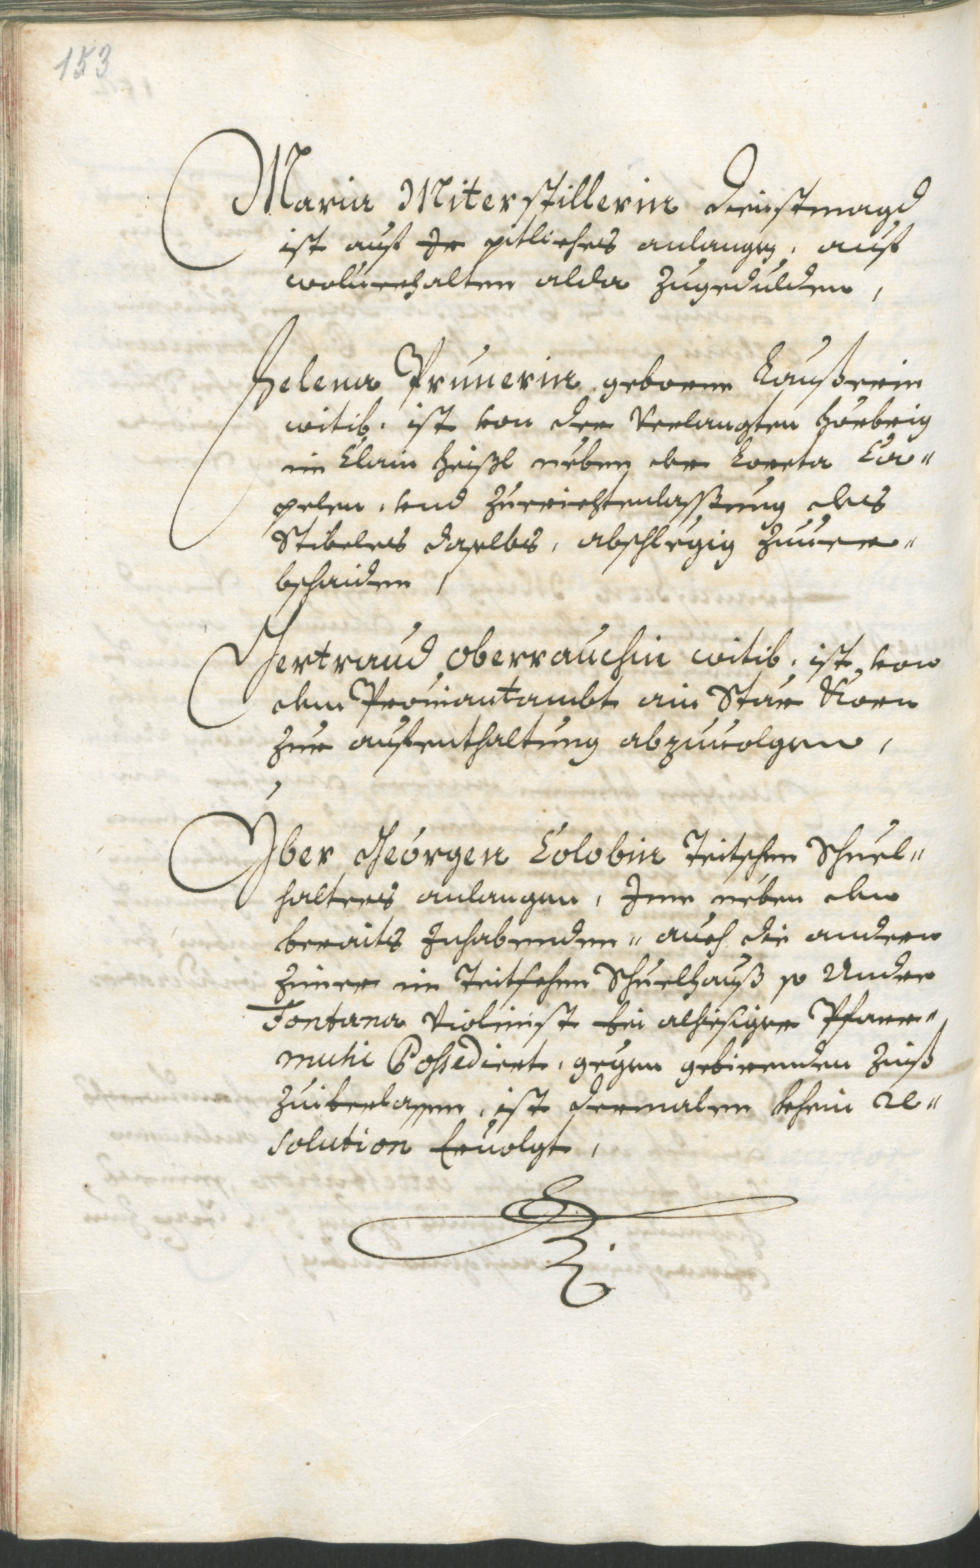 153
Maria Miterstillerin dienstmagd
ist auf Ir pitliches anlangen, auf
wolverhalten alda zugedulden,
Helena Prunerin geborne Laußerin
witib, ist von der verlangten herbrig
im Clain heißl neben der Loreta Ca"
pelen, und zuerichtenlassung des
Stibeles daselbs, abschlegig zuuer"
bschaiden,
Gertraud Oberrauchin witib, ist von
dem Prouiantambt ain Star Korn
zur aufenthaltung abzuuolgen,
Yber Georgen Colobin Teitschen Schuel"
halters anlangen, Ime neben den
beraits Inhabenden" auch die andern
Zimer im Teitschen Schuelhauß so Under
Fontana Violinist bei alhiesiger Pfarr"
music Possediert, gegen gebirenden Zinß
zuiberlassen, ist dermalen khein re"
solution ervolgt,